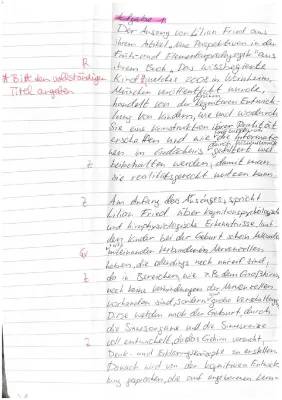 Aufgabe 1
Der Auszug von Lilian Fried aus
ihrem Artikel, "Neue Perspektiven in der
Früh- und Elementarpädagogik" aus
ihrem Buch, Das wissbegierige
Kind, 2008 in Weinheim,
München veröffentlicht wurde,
handelt von der kognitiven Entwick-
lung von Kindern, wie und wodurch
sie eine Konstruktion ihrer Realität
erschaffen und wie die Informatio-
nen im Gedächtnis gefiltert und
beibehalten werden, damit man
sie realitätsgerecht nutzen kann.
R
* Bitte den vollständigen
Titel angeben
Z
Am Anfang des Auszuges, spricht
Lilian Fried über kognitionspsychologische
und hirnphysiologische Erkenntnisse, laut
dem Kinder bei der Geburt schon tausende
miteinander verbundenen Nervenzellen
haben, die allerdings noch nicht sind,
da in Bereichen, wie z.B. dem Großhirn
noch keine Verbindungen der Nervenzellen
vorhanden sind, sondern große Vernetzung.
Diese werden nach der Geburt, durch
die Sinnesorgane und die Sinnesreize
voll entwickelt, da das Gehirn versucht,
Denk- und Erklärungskonzepte zu erstellen.
Danach wird von der kognitiven Entwick-
lung gesprochen, die auf angeborenen Lern-
Z
Gr
Z
Z